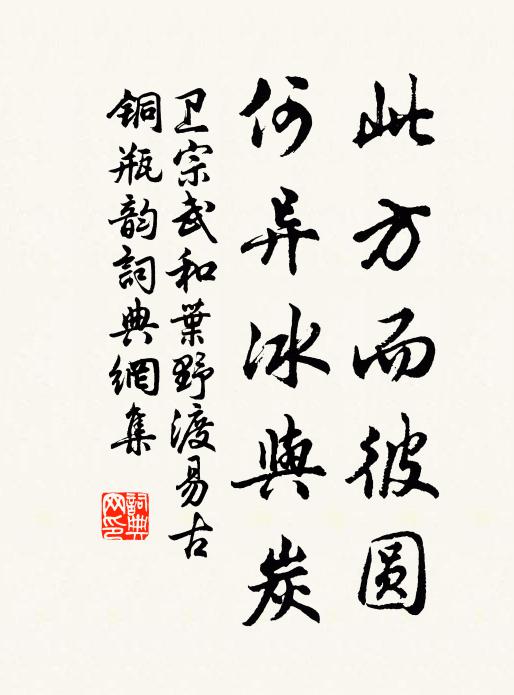 此方而彼圆
何异冰與炭
卫宗武和葉野渡易古
铜瓶韵詞典網集
詞典
网印